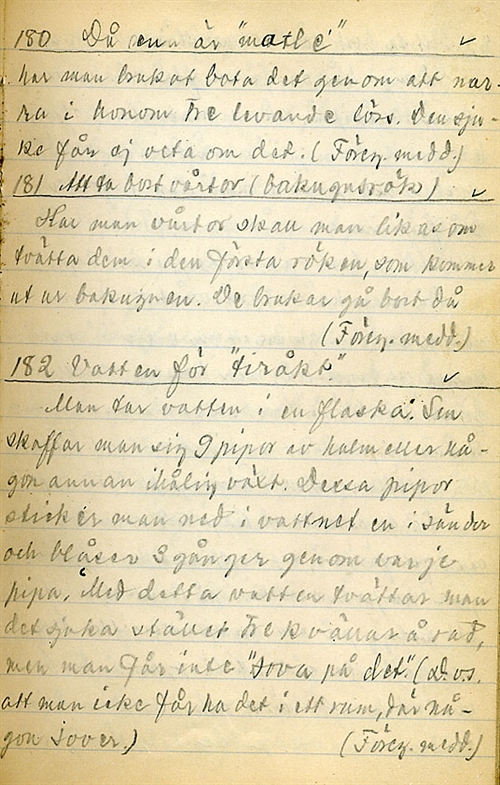 180 Då en är "matlé"
har man brukat bota det genom att nar-
ra i honom tre levande löss. Den sju-
ke får ej veta om det. (Föreg. medd.)
181 Att ta bort vårtor (bakugnsrök)
Har man vårtor skall man likasom
tvätta dem i den första röken, som kommer
ut ur bakugnen. De brukar gå bort då
(Föreg. medd.)
182 Vatten för "tiråkt."
Man tar vatten i en flaska. Sen
skaffar man sig 9 pipor av halm eller nå-
gon annan ihålig växt. Dessa pipor
sticker man ned i vattnet en i sänder
och blåser 3 gånger genom varje
pipa. Med detta vatten tvättar man
det sjuka stället tre kvällar å rad,
men man får inte "sova på det." (D.v.s.
att man icke får ha det i ett rum, där nå-
gon sover.) (Föreg. medd.)